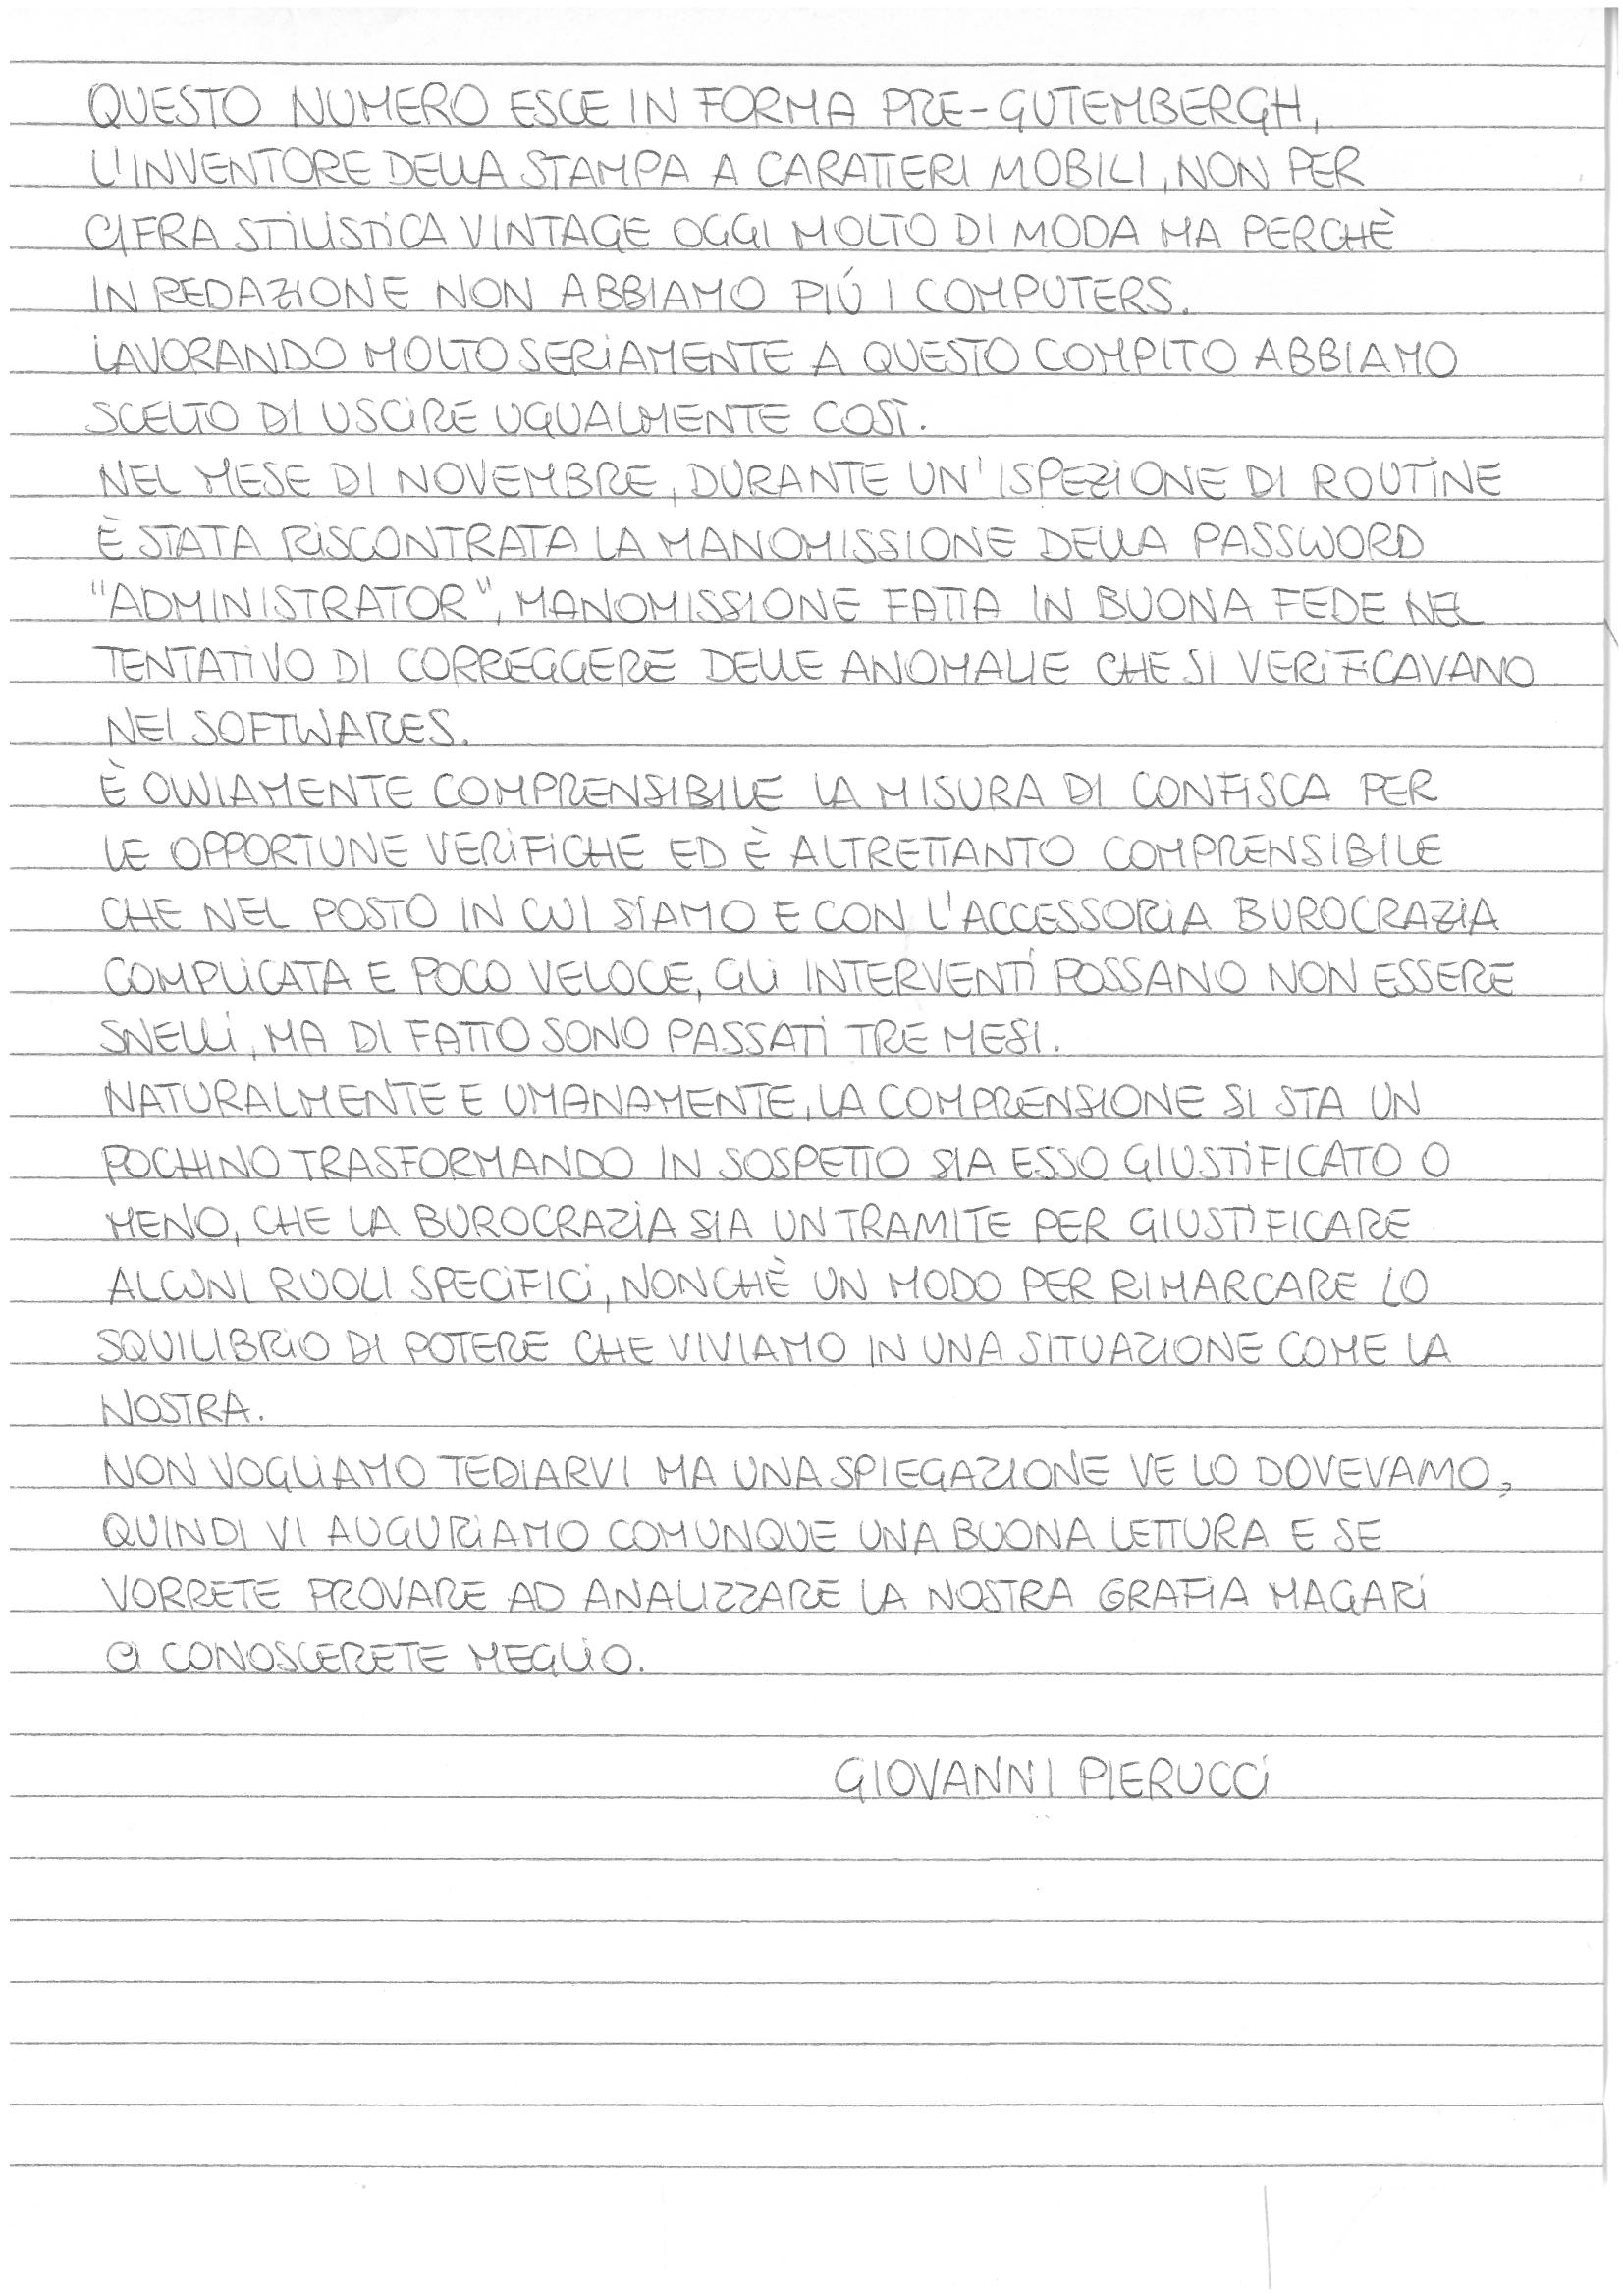 QUESTO NUMERO ESCE IN FORMA PRE-GUTEMBERGH,
L'INVENTORE DELLA STAMPA A CARATTERI MOBILI, NON PER
CIFRA STILISTICA VINTAGE OGGI MOLTO DI MODA MA PERCHÈ
IN REDAZIONE NON ABBIAMO PIÚ I COMPUTERS.
LAVORANDO MOLTO SERIAMENTE A QUESTO COMPITO ABBIAMO
SCELTO DI USCIRE UGUALMENTE COSÌ.
NEL MESE DI NOVEMBRE, DURANTE UN'ISPEZIONE DI ROUTINE
È STATA RISCONTRATA LA MANOMISSIONE DELLA PASSWORD
"ADMINISTRATOR", MANOMISSIONE FATTA IN BUONA FEDE NEL
TENTATIVO DI CORREGGERE DELLE ANOMALIE CHE SI VERIFICAVANO
NEI SOFTWARES.
È OVVIAMENTE COMPRENSIBILE LA MISURA DI CONFISCA PER
LE OPPORTUNE VERIFICHE ED È ALTRETTANTO COMPRENSIBILE
CHE NEL POSTO IN CUI SIAMO E CON L'ACCESSORIA BUROCRAZIA
COMPLICATA E POCO VELOCE, GLI INTERVENTI POSSANO NON ESSERE
SNELLI, MA DI FATTO SONO PASSATI TRE MESI.
NATURALMENTE E UMANAMENTE, LA COMPRENSIONE SI STA UN
POCHINO TRASFORMANDO IN SOSPETTO SIA ESSO GIUSTIFICATO O
MENO, CHE LA BUROCRAZIA SIA UN TRAMITE PER GIUSTIFICARE
ALCUNI RUOLI SPECIFICI, NONCHÈ UN MODO PER RIMARCARE LO
SQUILIBRIO DI POTERE CHE VIVIAMO IN UNA SITUAZIONE COME LA
NOSTRA.
NON VOGLIAMO TEDIARVI MA UNA SPIEGAZIONE VE LO DOVEVAMO,
QUINDI VI AUGURIAMO COMUNQUE UNA BUONA LETTURA E SE
VORRETE PROVARE AD ANALIZZARE LA NOSTRA GRAFIA MAGARI
CI CONOSCERETE MEGLIO.
GIOVANNI PIERUCCI